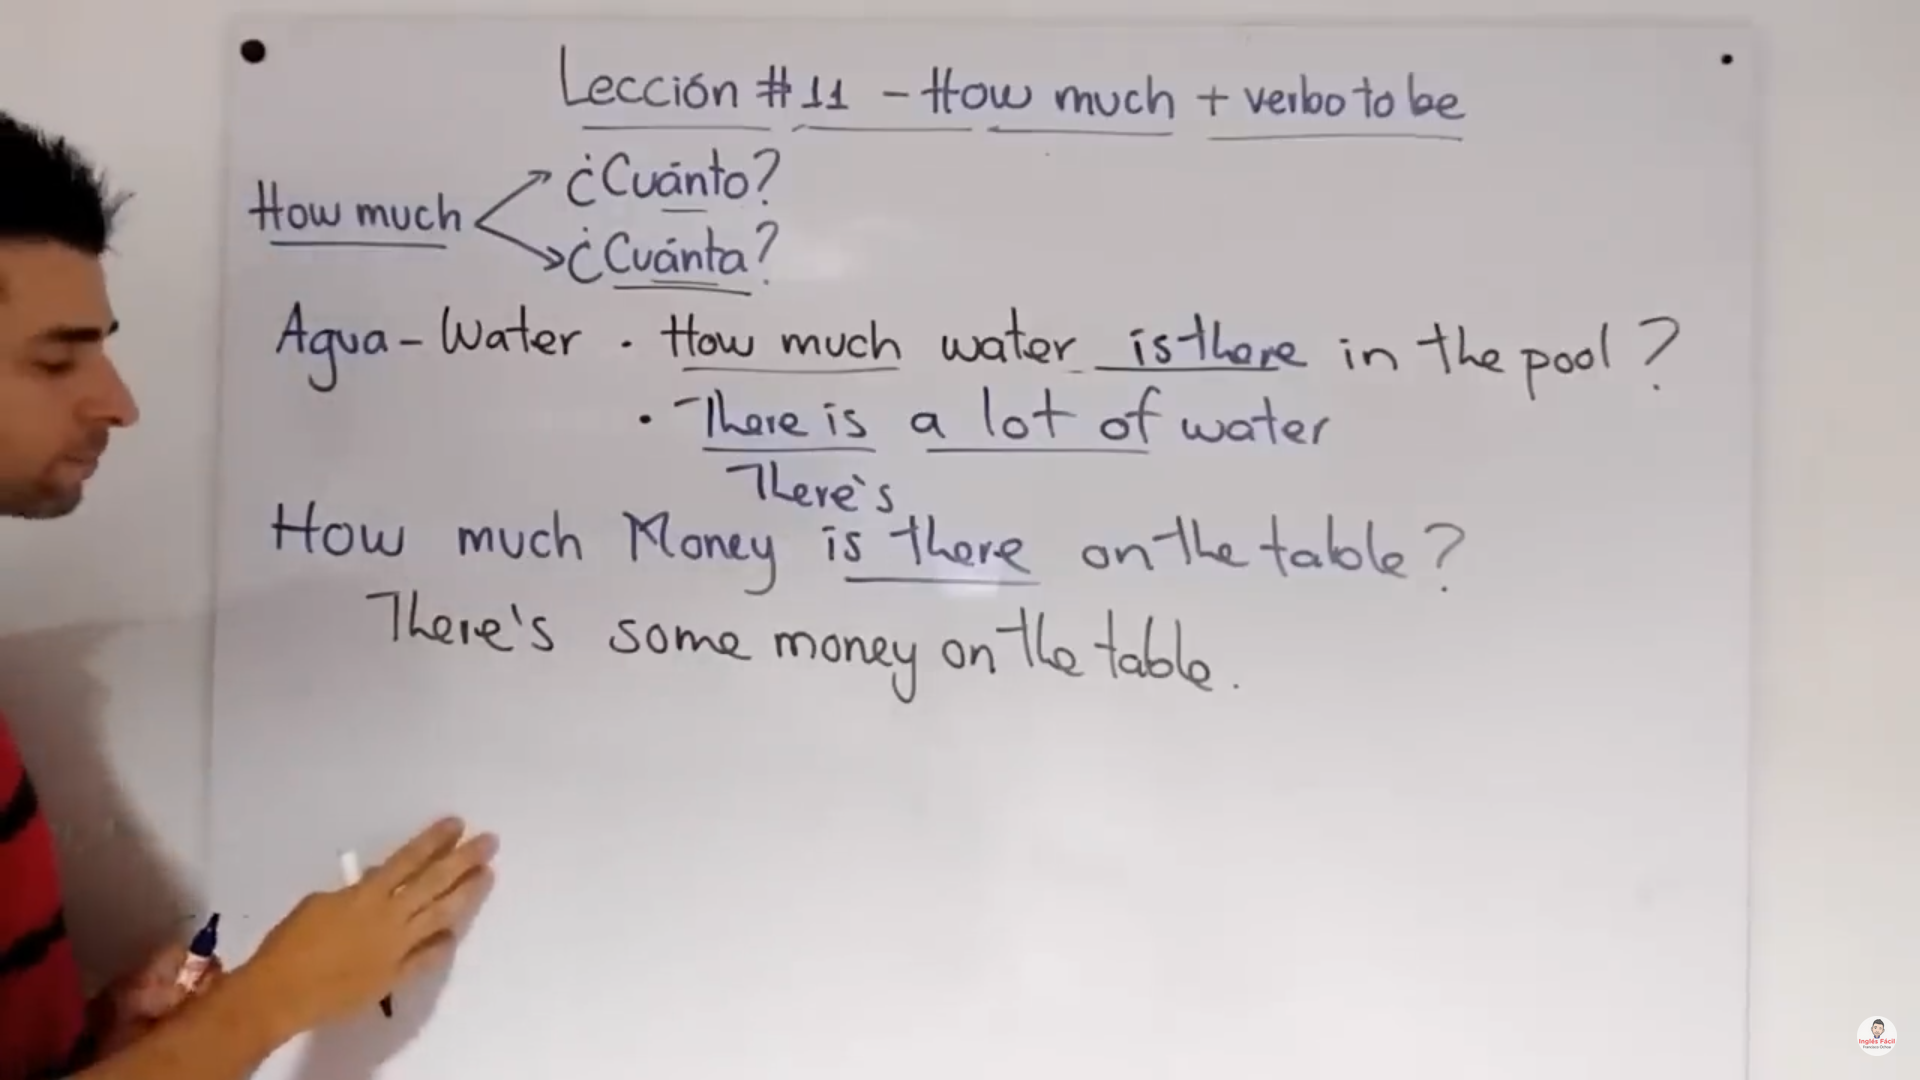 Lección #11 - How much + verbo to be
¿Cuánto?
How much
¿Cuánta?
Agua - Water · How much water is there in the pool?
· There is a lot of water
There's
How much Money is there on the table?
There's some money on the table.
Inglés Fácil
Francisco Ochoa